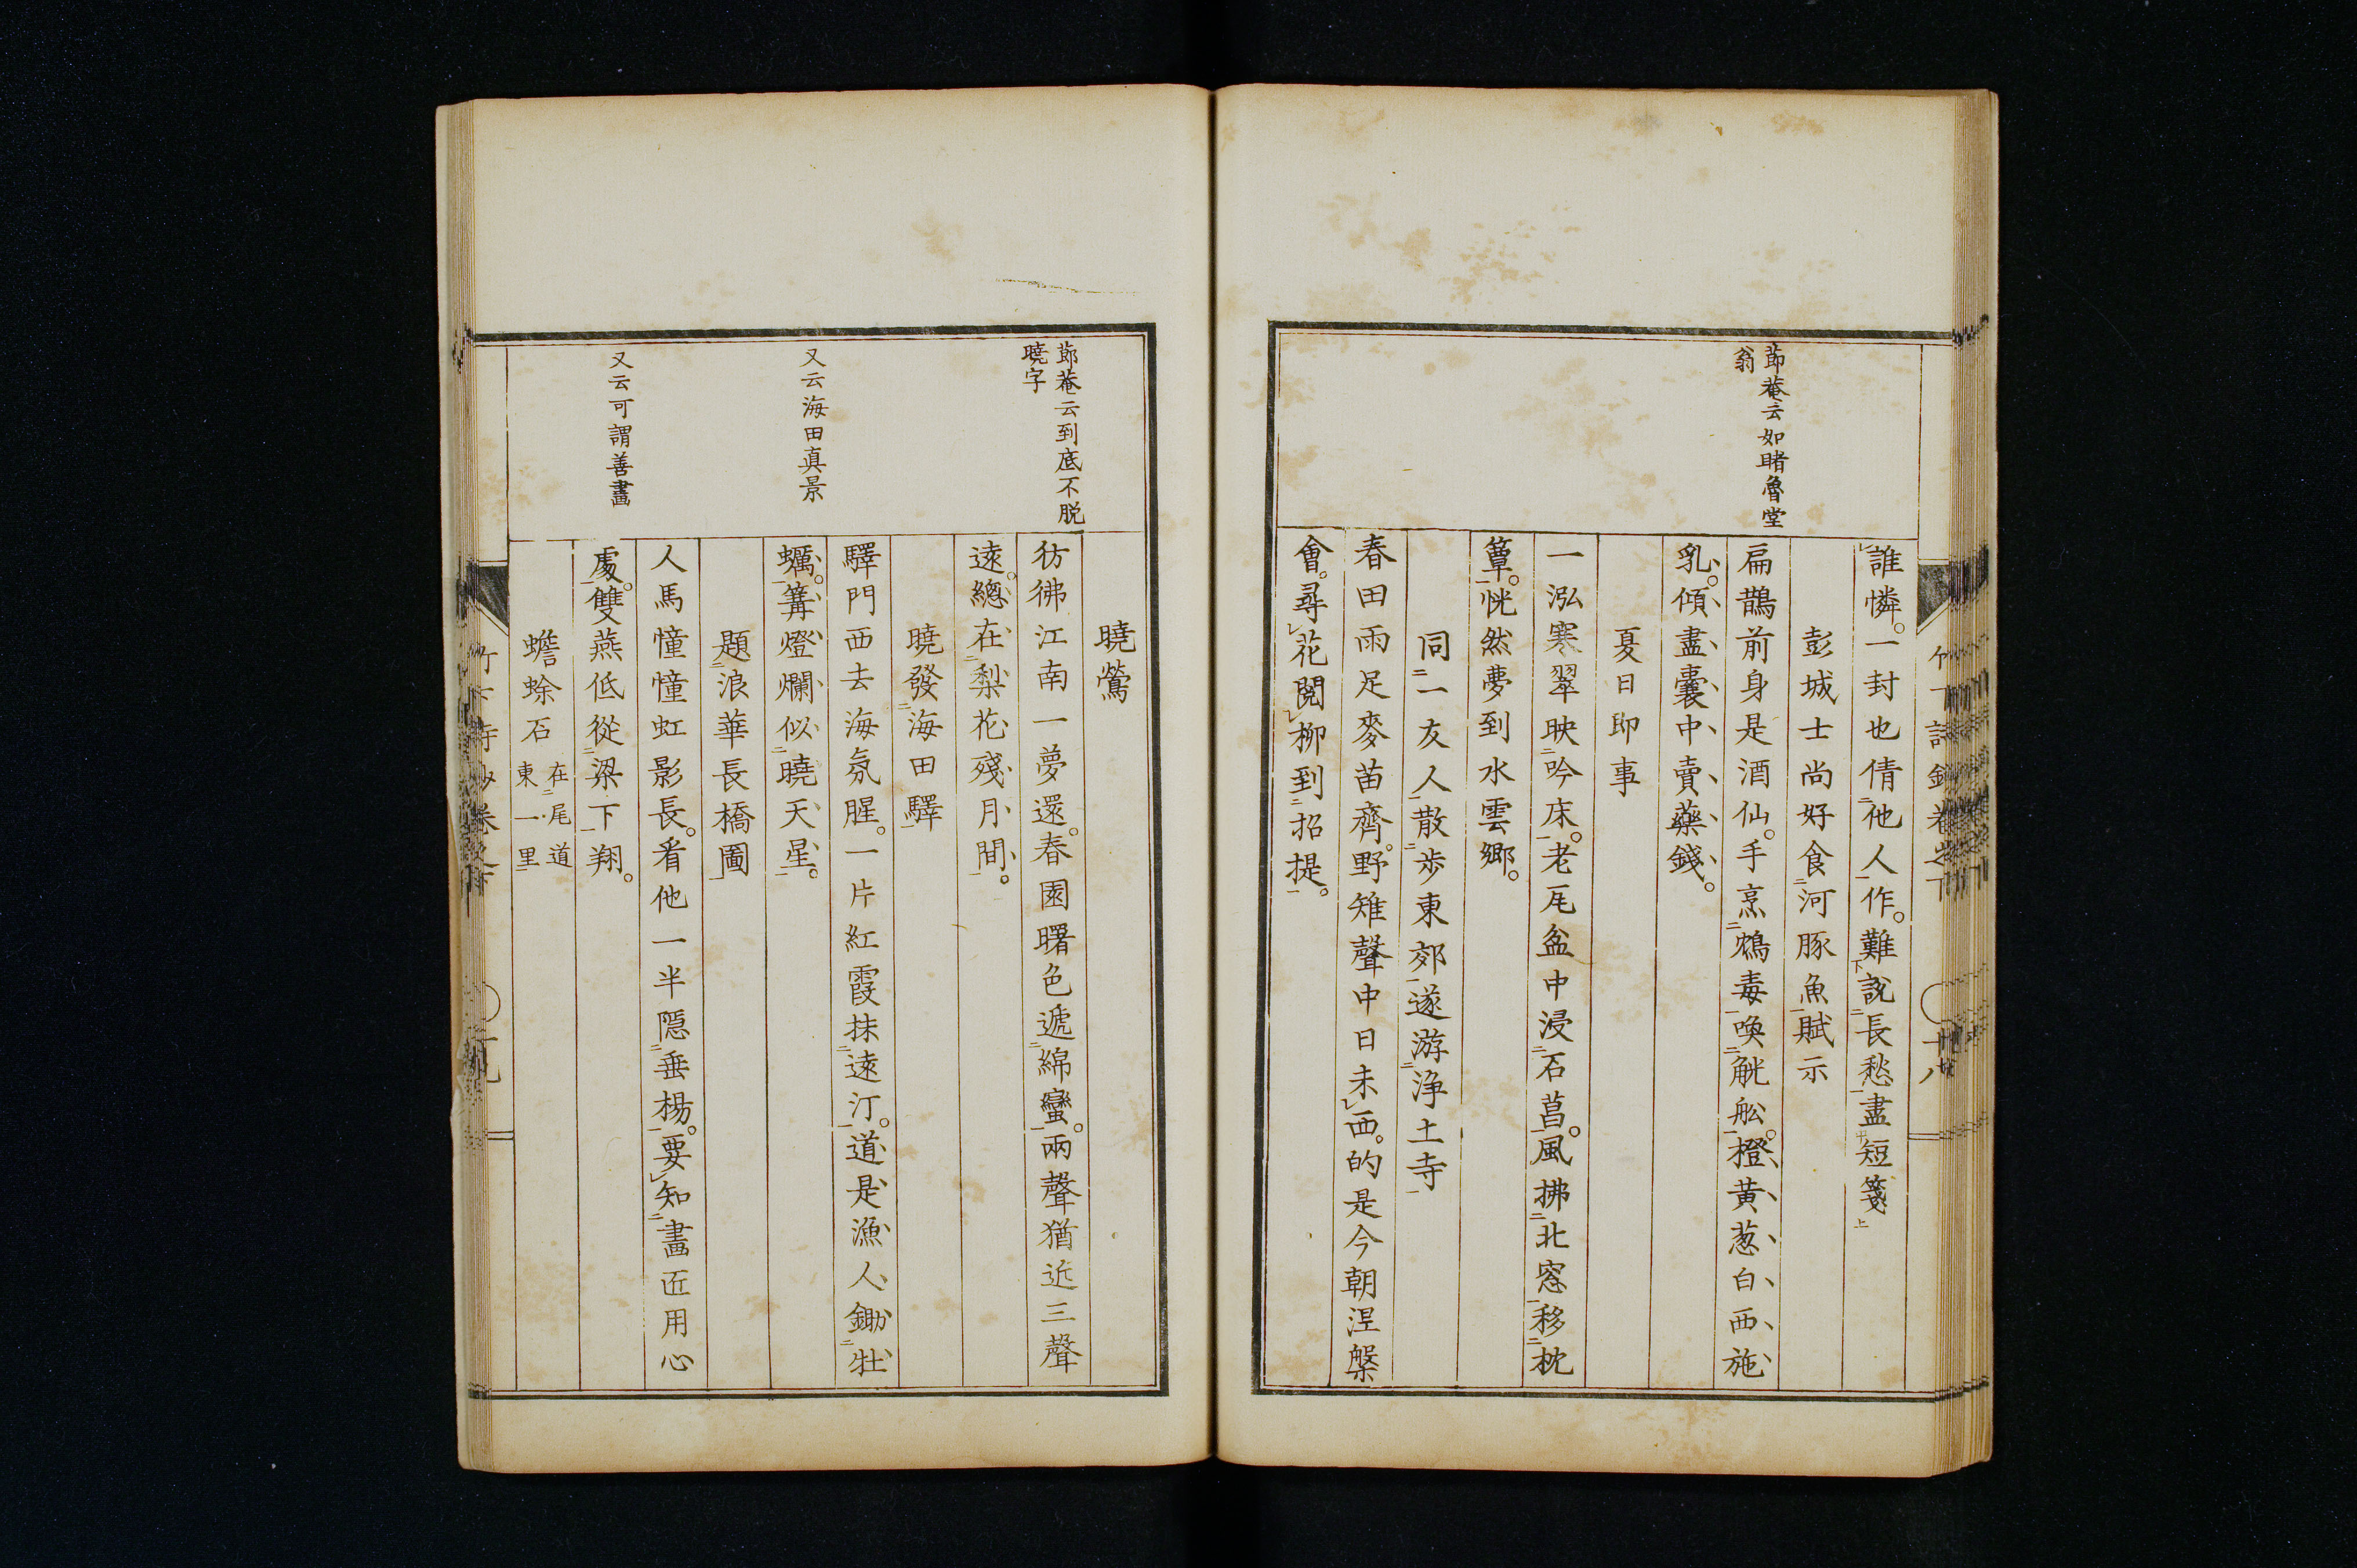 節菴云如睹魯堂
翁
誰憐。一封也倩他人作。難說長愁盡短箋
彭城士尚好食河豚魚賦示
扁鵲前身是酒仙。手烹鴆毒喚觥舩。橙黄葱白西施
乳。傾盡囊中賣藥錢。
夏日即事
一泓寒翠映吟床。老瓦盆中浸石菖。風拂北窓移枕
簟。恍然夢到水雲鄉。
同一友人散歩東郊遂游浄土寺
春田雨足麥苗齊。野雉聲中日未西。的是今朝涅槃
會。尋花閲柳到招提。
節菴云到底不脱
曉字
又云海田真景
又云可謂善畫
曉鶯
彷彿江南一夢還。春園曙色遞綿蠻。兩聲猶近三聲
遠。總在梨花殘月間。
曉發海田驛
驛門西去海氛腥。一片紅霞抹遠汀。道是漁人鋤牡
蠣。篝燈爛似曉天星。
題浪華長橋圖
人馬憧憧虹影長。看他一半隱垂楊。要知畫匠用心
處。雙燕低從梁下翔。
蟾蜍石 在尾道
東一里